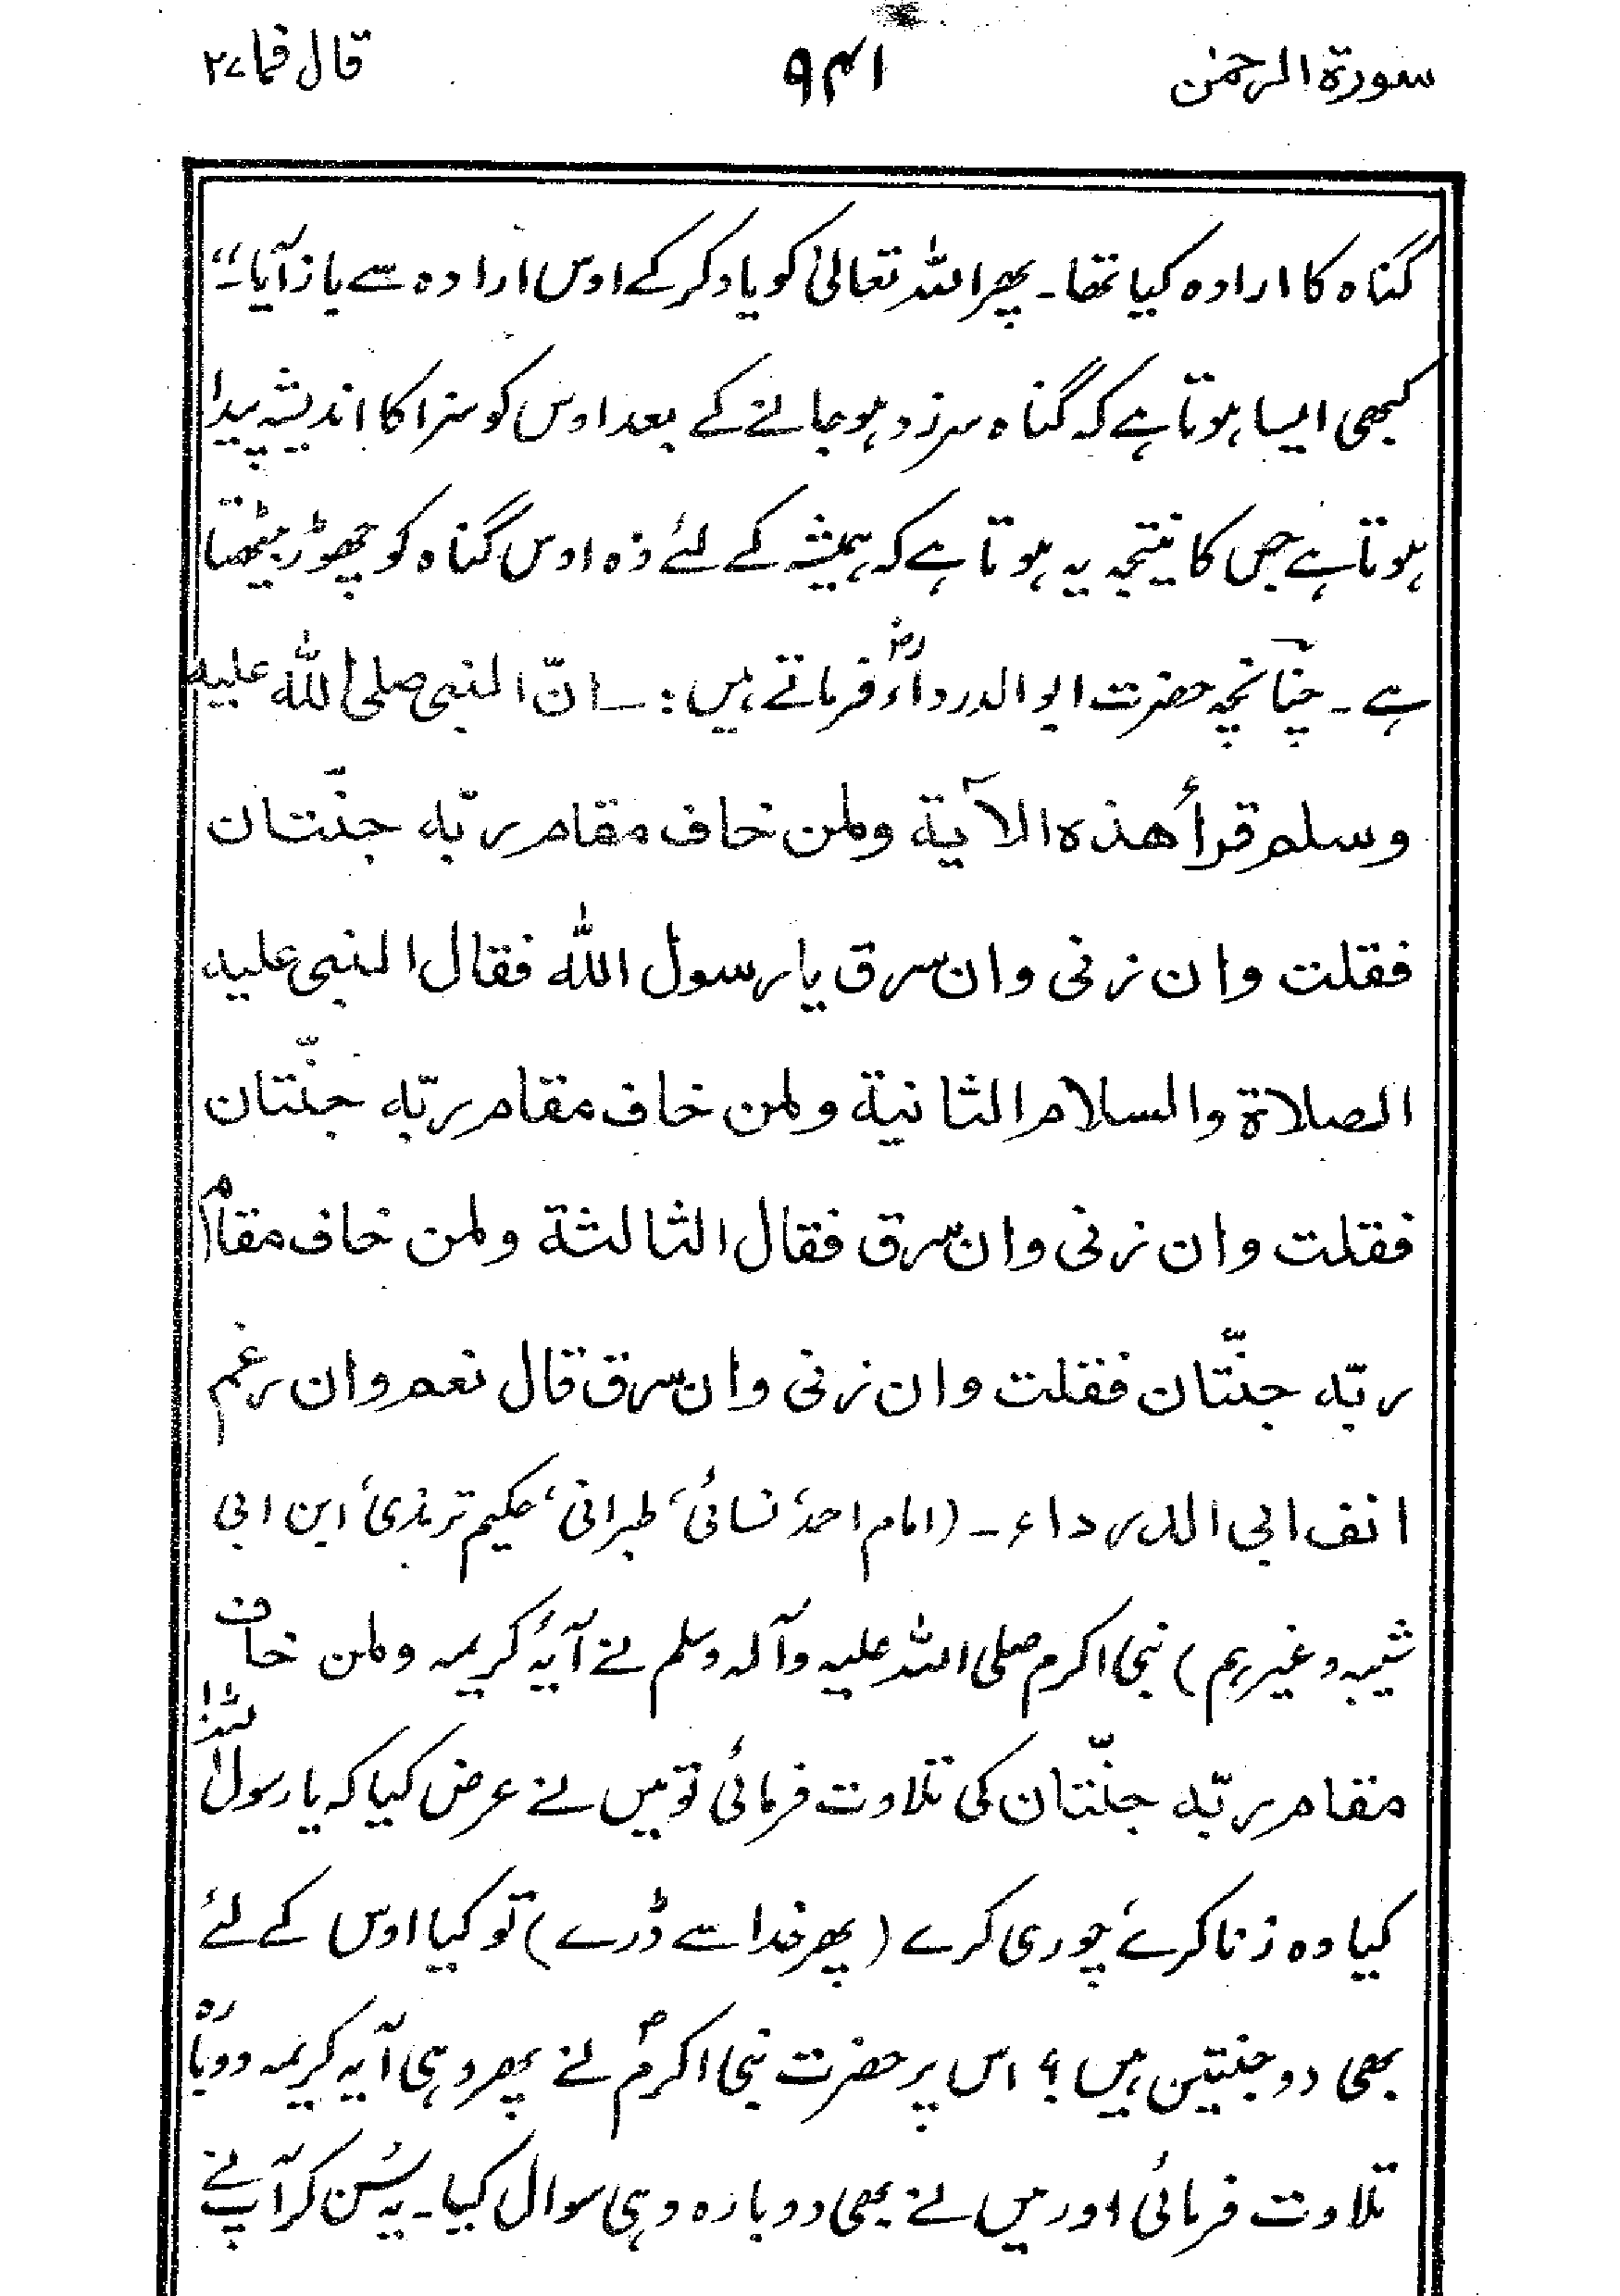 سورۃ الرحمٰن ۹۴۱ قال فما ۲۷
گناہ کا ارادہ کیا تھا۔ پھر اللہ تعالیٰ کو یاد کر کے اوس ارادہ سے باز آیا۔“
کبھی ایسا ہوتا ہے کہ گناہ سرزد ہو جانے کے بعد اوس کو سزا کا اندیشہ پیدا
ہوتا ہے جس کا نیتجہ یہ ہوتا ہے کہ ہمیشہ کے لئے وہ اوس گناہ کو چھوڑ بیٹھتا
ہے۔ چنانچہ حضرت ابوالدرداءؓ فرماتے ہیں:۔ انّ النبی صلی اللہ علیہ
وسلم قرأ ھذہ الآیۃ ولمن خاف مقام ربّہ جنّتان
فقلت وان زنی وان سرق یا رسول اللہ فقال النبی علیہ
الصلاۃ والسلام الثانیۃ ولمن خاف مقام ربّہ جنّتان
فقلت وان زنی وان سرق فقال الثالثۃ ولمن خاف مقام
ربّہ جنّتان فقلت وان زنی وان سرق قال نعم وان رغم
انف ابی الدرداء۔ (امام احمد، نسائی، طبرانی، حکیم ترمذی، ابن ابی
شیبہ وغیرہم) نبی اکرم صلی اللہ علیہ وآلہ وسلم نے آیۂ کریمہ ولمن خاف
مقام ربّہ جنّتان کی تلاوت فرمائی تو میں نے عرض کیا کہ یا رسول اللہ!
کیا وہ زنا کرے، چوری کرے (پھر خدا سے ڈرے) تو کیا اوس کے لئے
بھی دو جنتیں ہیں؟ اس پر حضرت نبی اکرمؐ نے پھر وہی آیہ کریمہ دوبارہ
تلاوت فرمائی اور میں نے بھی دوبارہ وہی سوال کیا۔ یہ سُن کر آپ نے